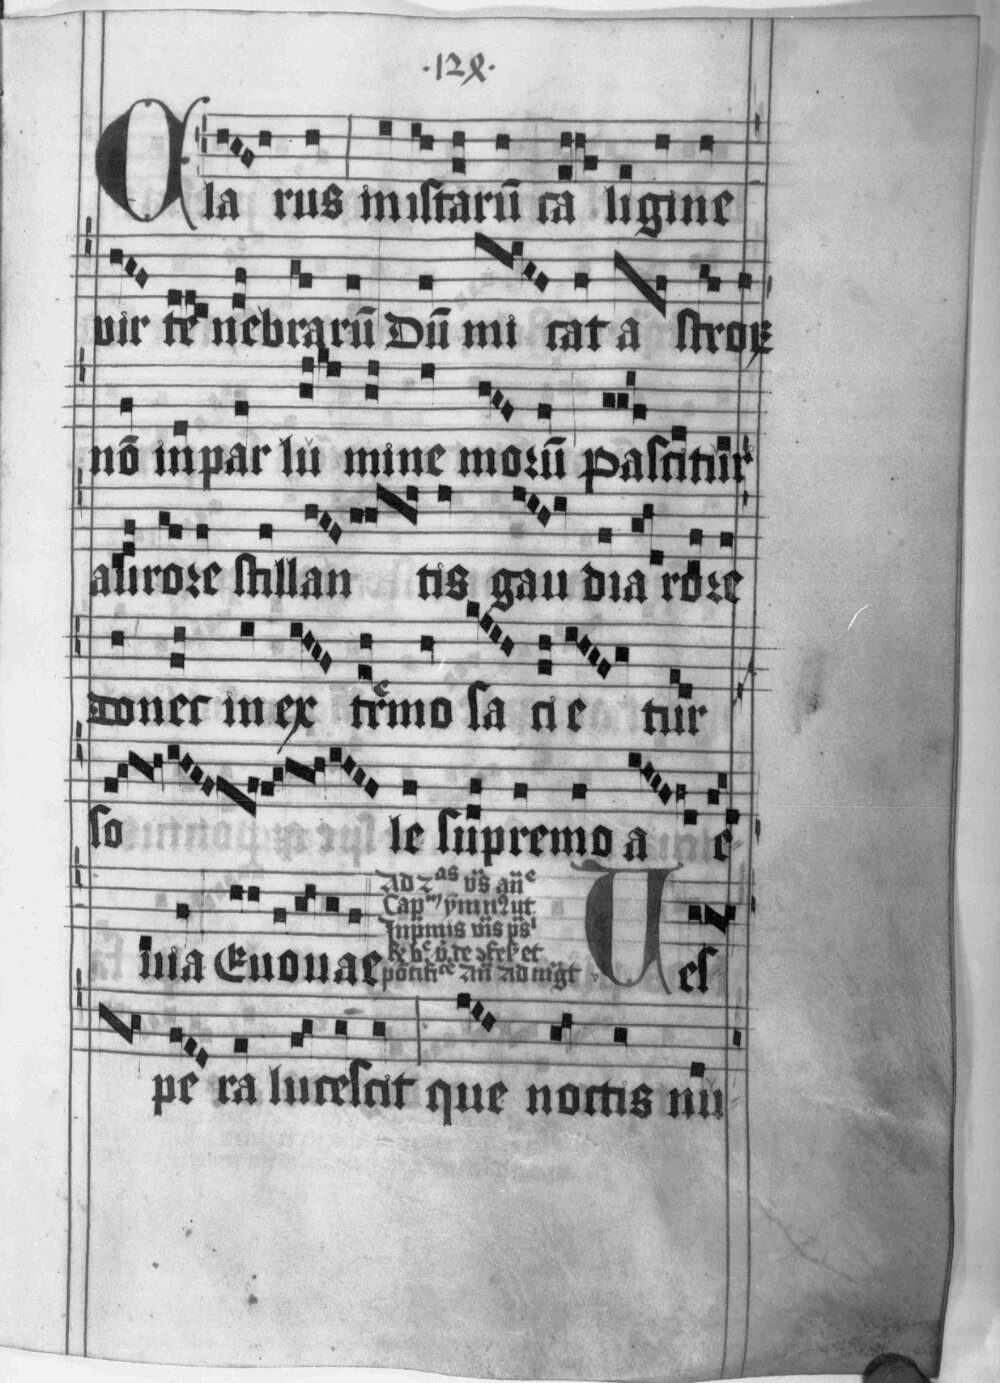 ·128·
Cla rus mistarū ca ligine
vir te nebrarū Dū mi cat a stroꝝ
nō in par lu mine morū Pascitur
aurore stillan tis gau dia rore
Donec in ex tremo sa ci e tur
so le supremo a e
uia Euouae Ues
Ad 2as vs̄ añe
Cap ymn ut
In pmis vīs ps
pe ra lucescit que noctis nu